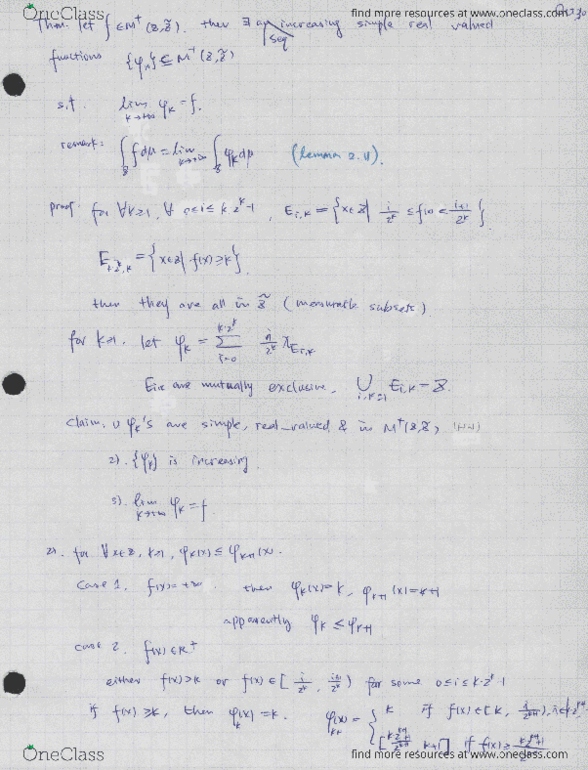 OneClass
find more resources at www.oneclass.com
Thm. let f ∈ M⁺(Z, Z̃). then ∃ an increasing seq simple real valued
functions {φₙ} ⊆ M⁺(Z, Z̃)
s.t. lim_{k→+∞} φ_k = f.
remark: ∫_Z f dμ = lim_{k→+∞} ∫_Z φ_k dμ (lemma 2.4).
proof. for ∀k≥1, ∀ 0≤i≤k·2^k-1, E_{i,k} = {x∈Z | i/2^k ≤ f(x) < (i+1)/2^k}
E_{k2^k,k} = {x∈Z | f(x)≥k}
then they are all in Z̃ (measurable subsets)
for k≥1. let φ_k = Σ_{i=0}^{k·2^k} i/2^k χ_{E_{i,k}}
E_{i,k} are mutually exclusive, ⋃_{i,k≥1} E_{i,k} = Z.
Claim. 1) φ_k's are simple, real-valued & in M⁺(Z, Z̃)
2). {φ_k} is increasing.
3). lim_{k→+∞} φ_k = f
2). for ∀x∈Z, k≥1, φ_k(x) ≤ φ_{k+1}(x).
Case 1. f(x)=+∞ then φ_k(x)=k, φ_{k+1}(x)=k+1
apparently φ_k ≤ φ_{k+1}
case 2. f(x)∈R⁺
either f(x)≥k or f(x)∈[i/2^k, (i+1)/2^k) for some 0≤i≤k·2^k-1
if f(x)≥k, then φ_k(x)=k. φ_{k+1}(x) = { k if f(x)∈[k,
OneClass
find more resources at www.oneclass.com